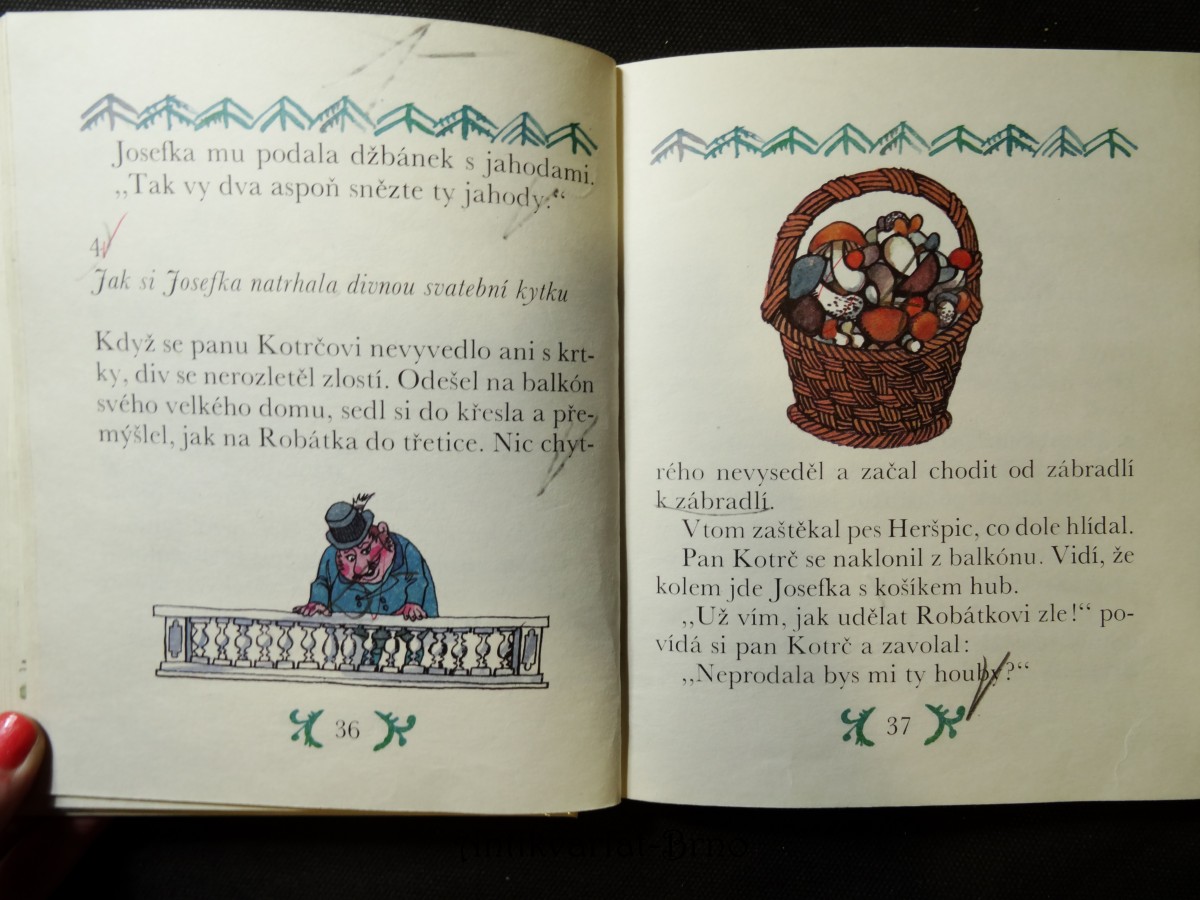 Josefka mu podala džbánek s jahodami.
„Tak vy dva aspoň snězte ty jahody.“
4
Jak si Josefka natrhala divnou svatební kytku
Když se panu Kotrčovi nevyvedlo ani s krt-
ky, div se nerozletěl zlostí. Odešel na balkón
svého velkého domu, sedl si do křesla a pře-
mýšlel, jak na Robátka do třetice. Nic chyt-
36
rého nevyseděl a začal chodit od zábradlí
k zábradlí.
Vtom zaštěkal pes Heršpic, co dole hlídal.
Pan Kotrč se naklonil z balkónu. Vidí, že
kolem jde Josefka s košíkem hub.
„Už vím, jak udělat Robátkovi zle!“ po-
vídá si pan Kotrč a zavolal:
„Neprodala bys mi ty houby?“
37
antikvariat-Brno